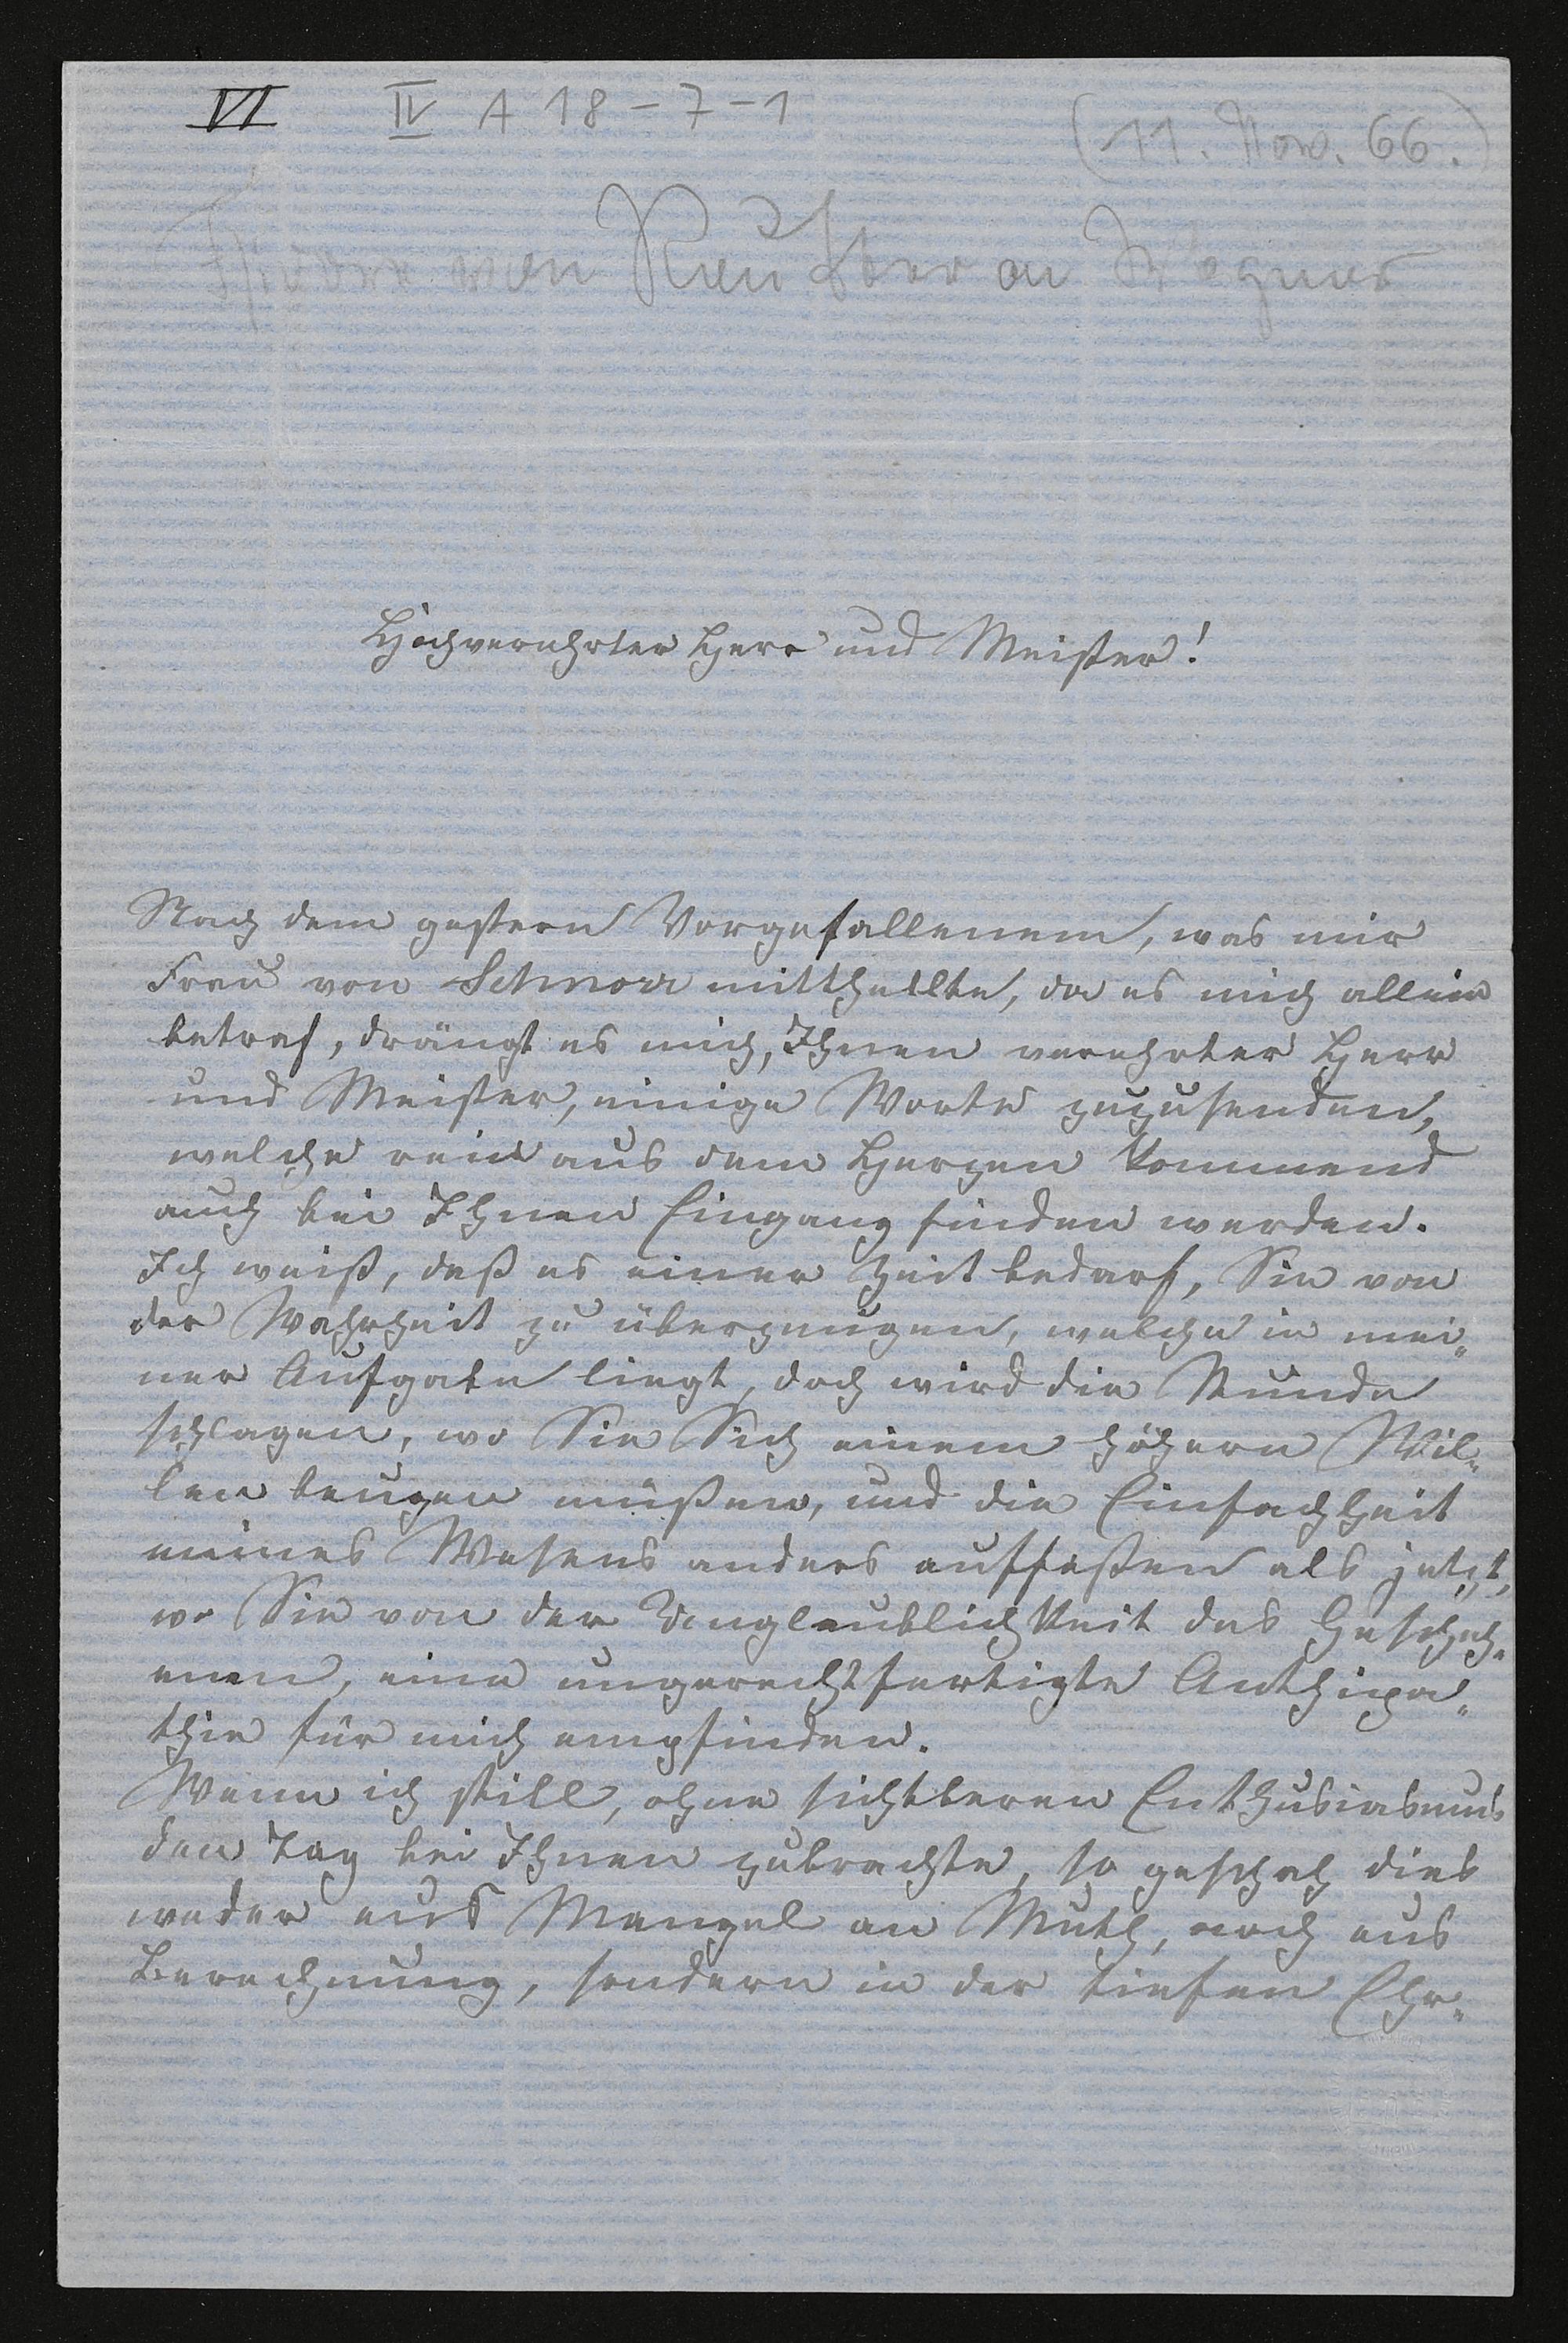 VI IV A 18-7-1
(11. Nov. 66.)
von Reutter an Wagner
Hochverehrter Herr und Meister!
Nach dem gestern Vorgefallenem, was mir
Frau von Schnorr mittheilte, da es mich allein
betraf, drängt es mich, Ihnen verehrter Herr
und Meister, einige Worte zuzusenden,
welche rein aus dem Herzen kommend
auch bei Ihnen Eingang finden werden.
Ich weiß, daß es einer Zeit bedarf, Sie von
der Wahrheit zu überzeugen, welche in mei„
ner Aufgabe liegt, doch wird die Stunde
schlagen, wo Sie Sich einem höhern Wil„
len beugen müßen, und die Einfachheit
meines Wesens anders auffaßen als jetzt,
wo Sie von der Unglaublichkeit des Gescheh„
enen, eine ungerechtfertigte Anthipa„
thie für mich empfinden.
Wenn ich still, ohne sichtbaren Enthusiasmus
den Tag bei Ihnen zubrachte, so geschah dies
weder aus Mangel an Muth, noch aus
Berechnung, sondern in der tiefen Ehr„